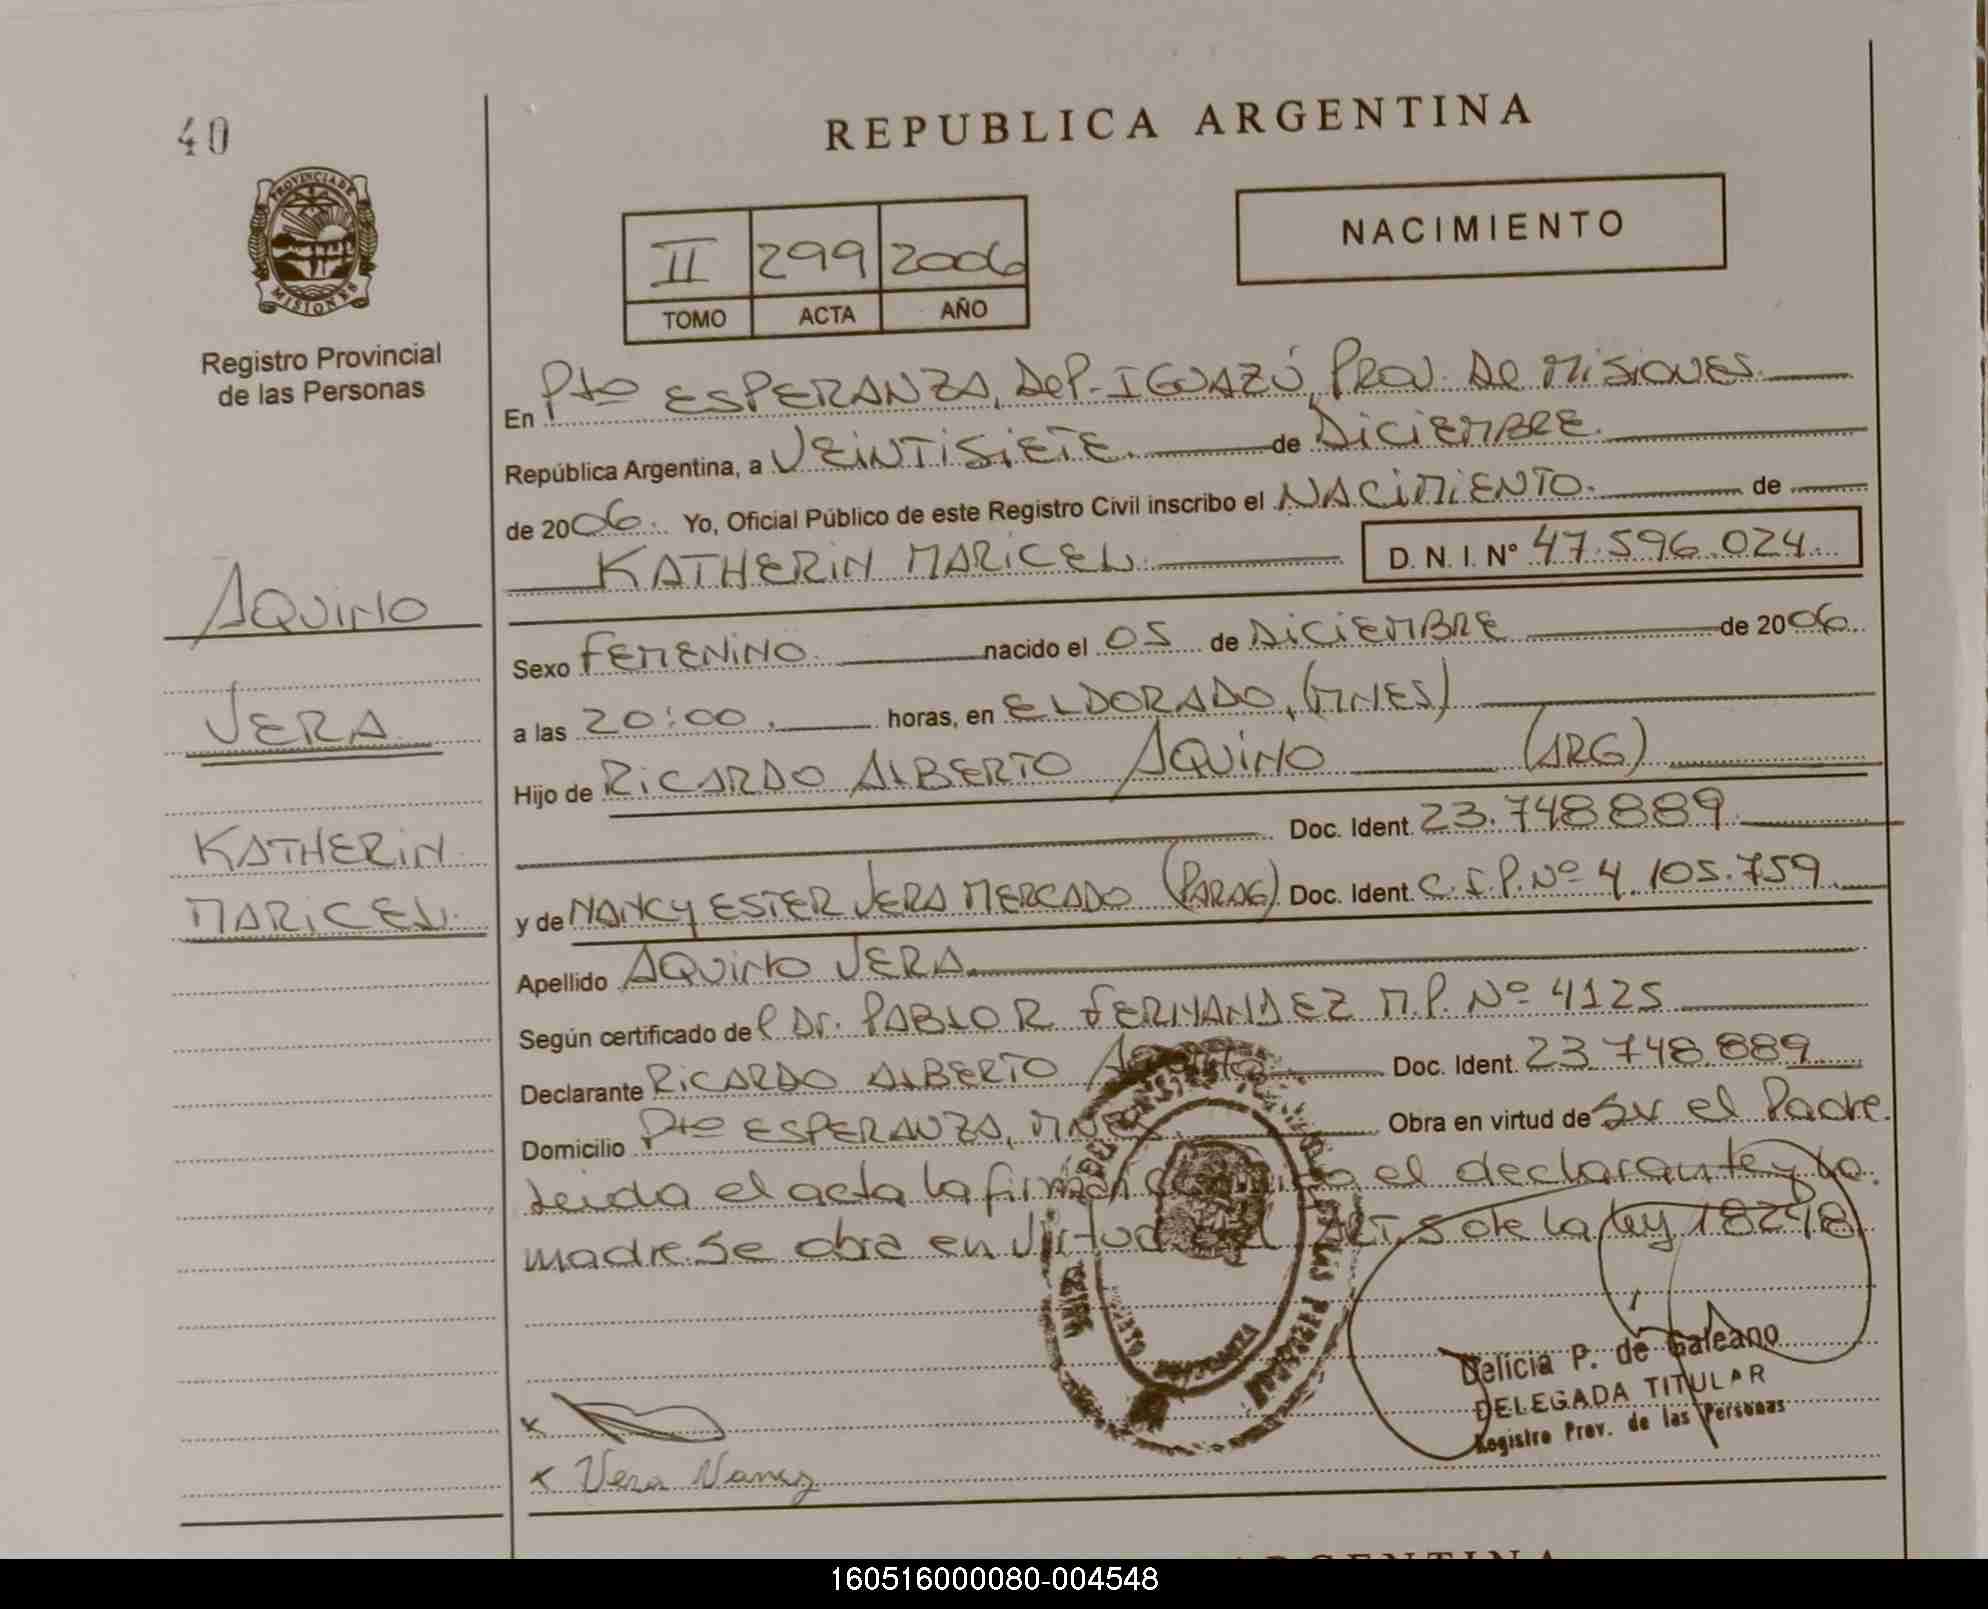 40
REPUBLICA ARGENTINA
PROVINCIA DE
MISIONES
Registro Provincial
de las Personas
NACIMIENTO
II 299 2006
TOMO ACTA AÑO
En Pto ESPERANZA, DeP-IGUAZÚ, PROV. De MISIONES
República Argentina, a VEINTISIETE de DICIEMBRE
de 2006. Yo, Oficial Público de este Registro Civil inscribo el NACIMIENTO de
KATHERIN MARICEL D. N. I. N° 47.596.024
AQUINO
VERA
KATHERIN
MARICEL
Sexo FEMENINO nacido el 05 de DICIEMBRE de 2006
a las 20:00 horas, en ELDORADO, (MNES)
Hijo de RICARDO ALBERTO AQUINO (ARG)
Doc. Ident. 23.748.889
y de NANCY ESTER VERA MERCADO (PARAG) Doc. Ident. C.I.P. Nº 4.105.759
Apellido AQUINO VERA
Según certificado del Dr. PABLO R FERNANDEZ M.P. Nº 4125
Declarante RICARDO ALBERTO AQUINO Doc. Ident. 23.748.889
Domicilio Pto ESPERANZA, MNES Obra en virtud de Sr el Padre.
Leida el acta la firman el declarante y la
madre. Se obra en virtud del ART. 5 de la ley 18248
Delicia P. de Galeano
DELEGADA TITULAR
Registro Prov. de las Personas
x
x Vera Nancy
ARGENTINA
160516000080-004548